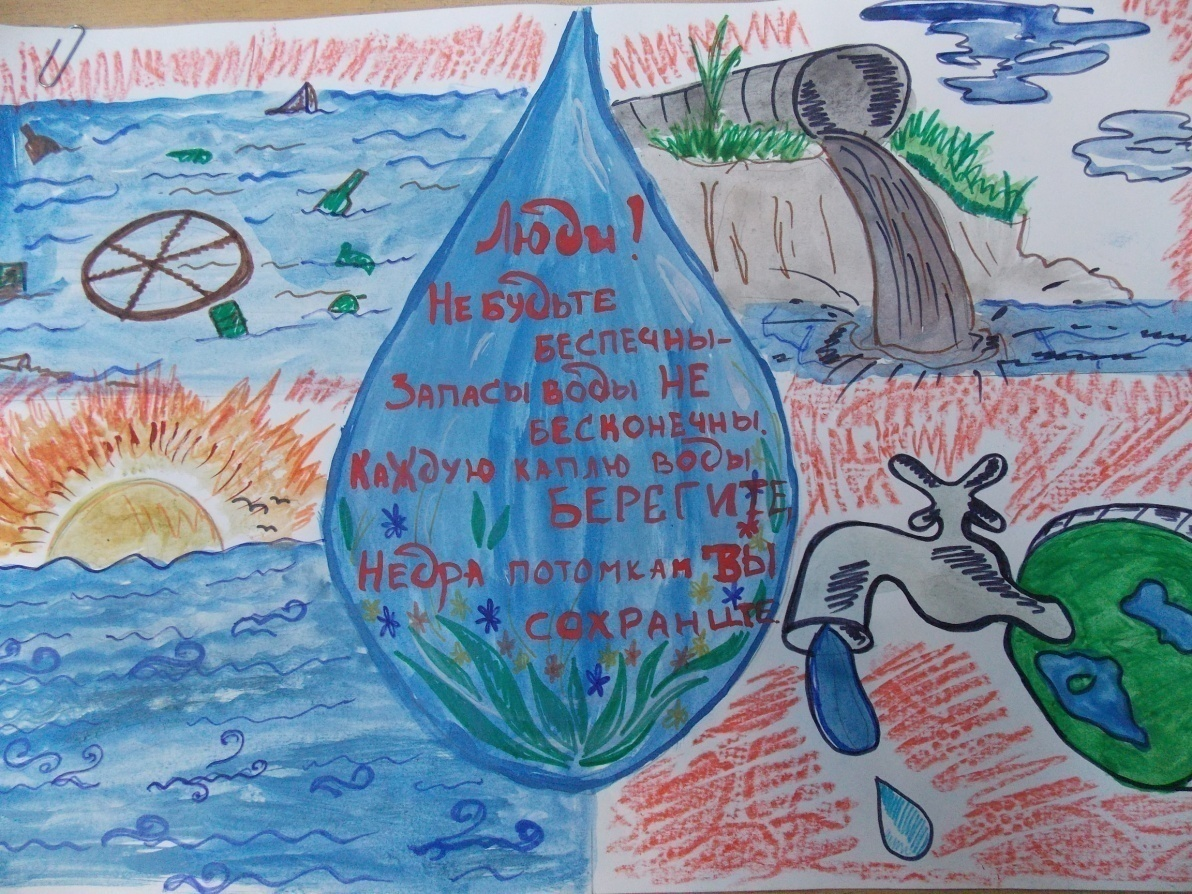 Люди!
Не будьте
беспечны-
Запасы воды НЕ
бесконечны.
Каждую каплю воды
БЕРЕГИТЕ
Недра потомкам Вы
сохраните